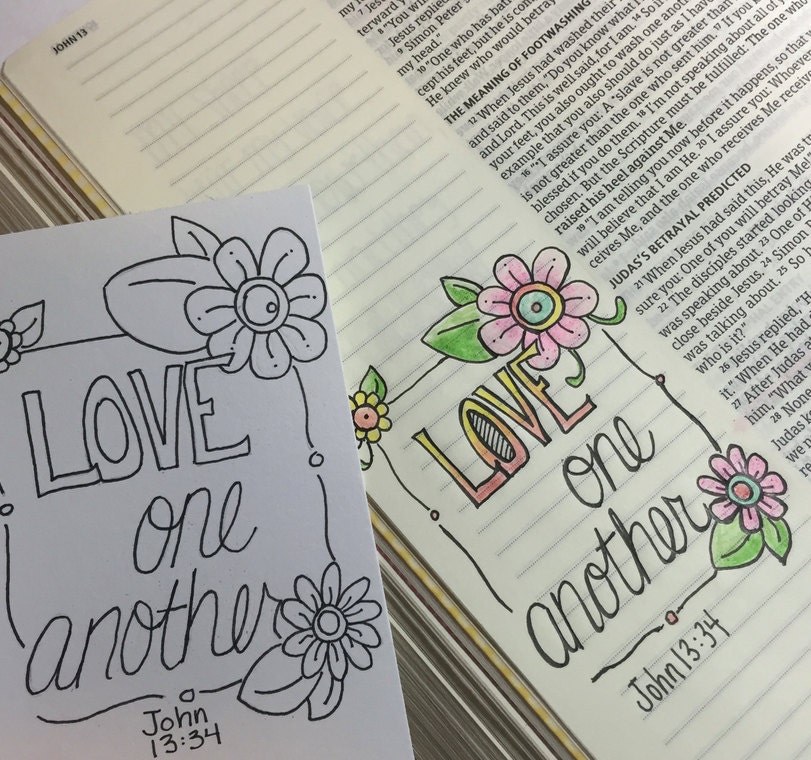 JOHN 13
Jesus replied
9 Simon Peter
my head."
10 "One who has
cept his feet, but he is
He knew who would betray
THE MEANING OF FOOTWASHING
12 When Jesus had washed their
and said to them, "Do you know what
and Lord. This is well said, for I am. 14 So
your feet, you also ought to wash one
example that you also should do just as I
16 "I assure you: A slave is not greater than
is not greater than the one who sent him. 17 If you
blessed if you do them. 18 I'm not speaking about all of
chosen. But the Scripture must be fulfilled: The one who
raised his heel against Me.
19 "I am telling you now before it happens, so
will believe that I am He. 20 I assure you: Whoever
ceives Me, and the one who receives Me
JUDAS'S BETRAYAL PREDICTED
21 When Jesus had said this, He was
sure you: One of you will betray
22 The disciples started looking
was speaking about. 23 One of
close beside Jesus. 24 Simon
was talking about. 25 So
who is it?"
26 Jesus replied,
it." When He had
27 After Judas
him. "What
28
Judas
LOVE
one
another
John
13:34
LOVE
one
another
John 13:34